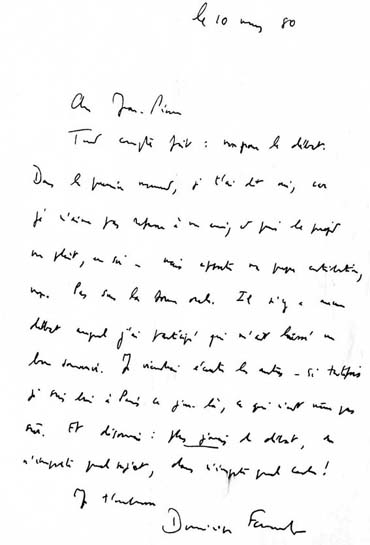 le 10 mars 80
Cher Jean-Pierre
Tout compte fait : non pour le débat.
Dans le premier moment, je t'ai dit oui, car
je n'aime pas refuser à un ami, et puis le projet
me plaît, en soi - mais apporter ma propre contribution,
non. Pas sur la bonne Il n'y a aucun
débat auquel j'ai participé qui m'ait laissé un
bon souvenir. Je viendrai écouter les autres - si toutefois
je suis à Paris ce jour-là, ce qui n'est même pas
sûr. Et désormais : plus jamais de débat, sur
n'importe quel sujet, dans n'importe quel cadre !
Je t'embrasse
Dominique